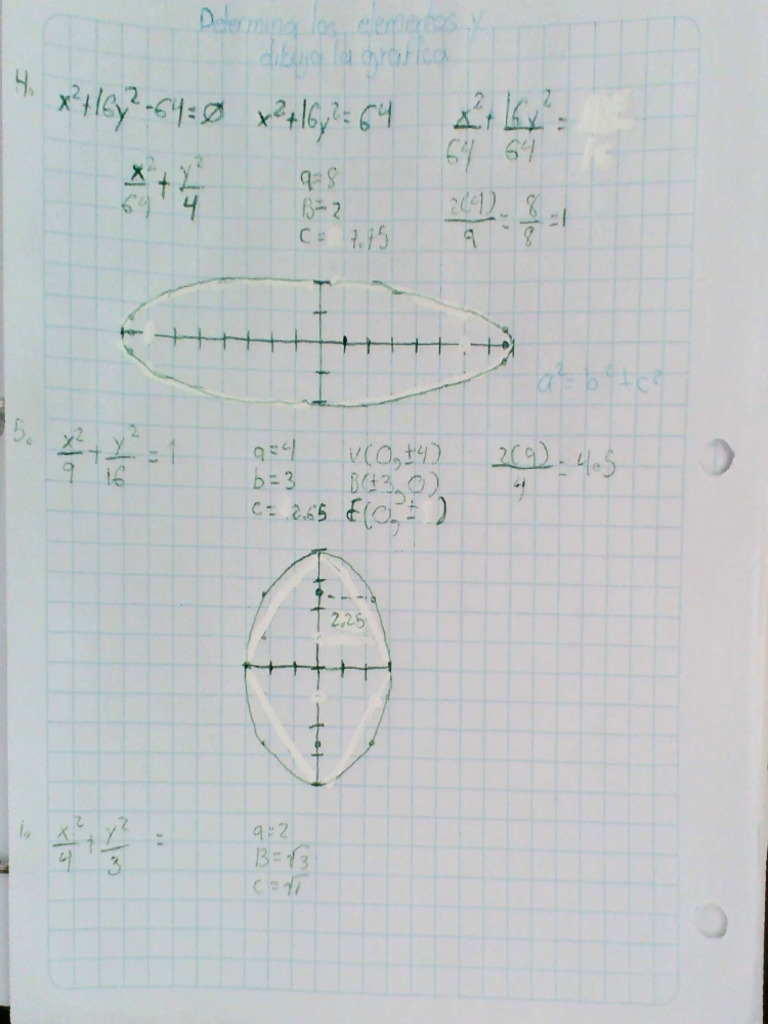 Determina los elementos y
dibuja la gráfica
4. x²+16y²-64=0 x²+16y²=64 x²/64 + 16y²/64 =
x²/64 + y²/4
a=8
B=2
c= 7.75
2(4)/9 = 8/8 =1
a²=b²+c²
5. x²/9 + y²/16 = 1
a=4 V(0,±4)
b=3 B(±3,0)
c= 2.65 F(0,± )
2(9)/4 = 4.5
2.25
1. x²/4 + y²/3 =
a=2
B=√3
c=√1